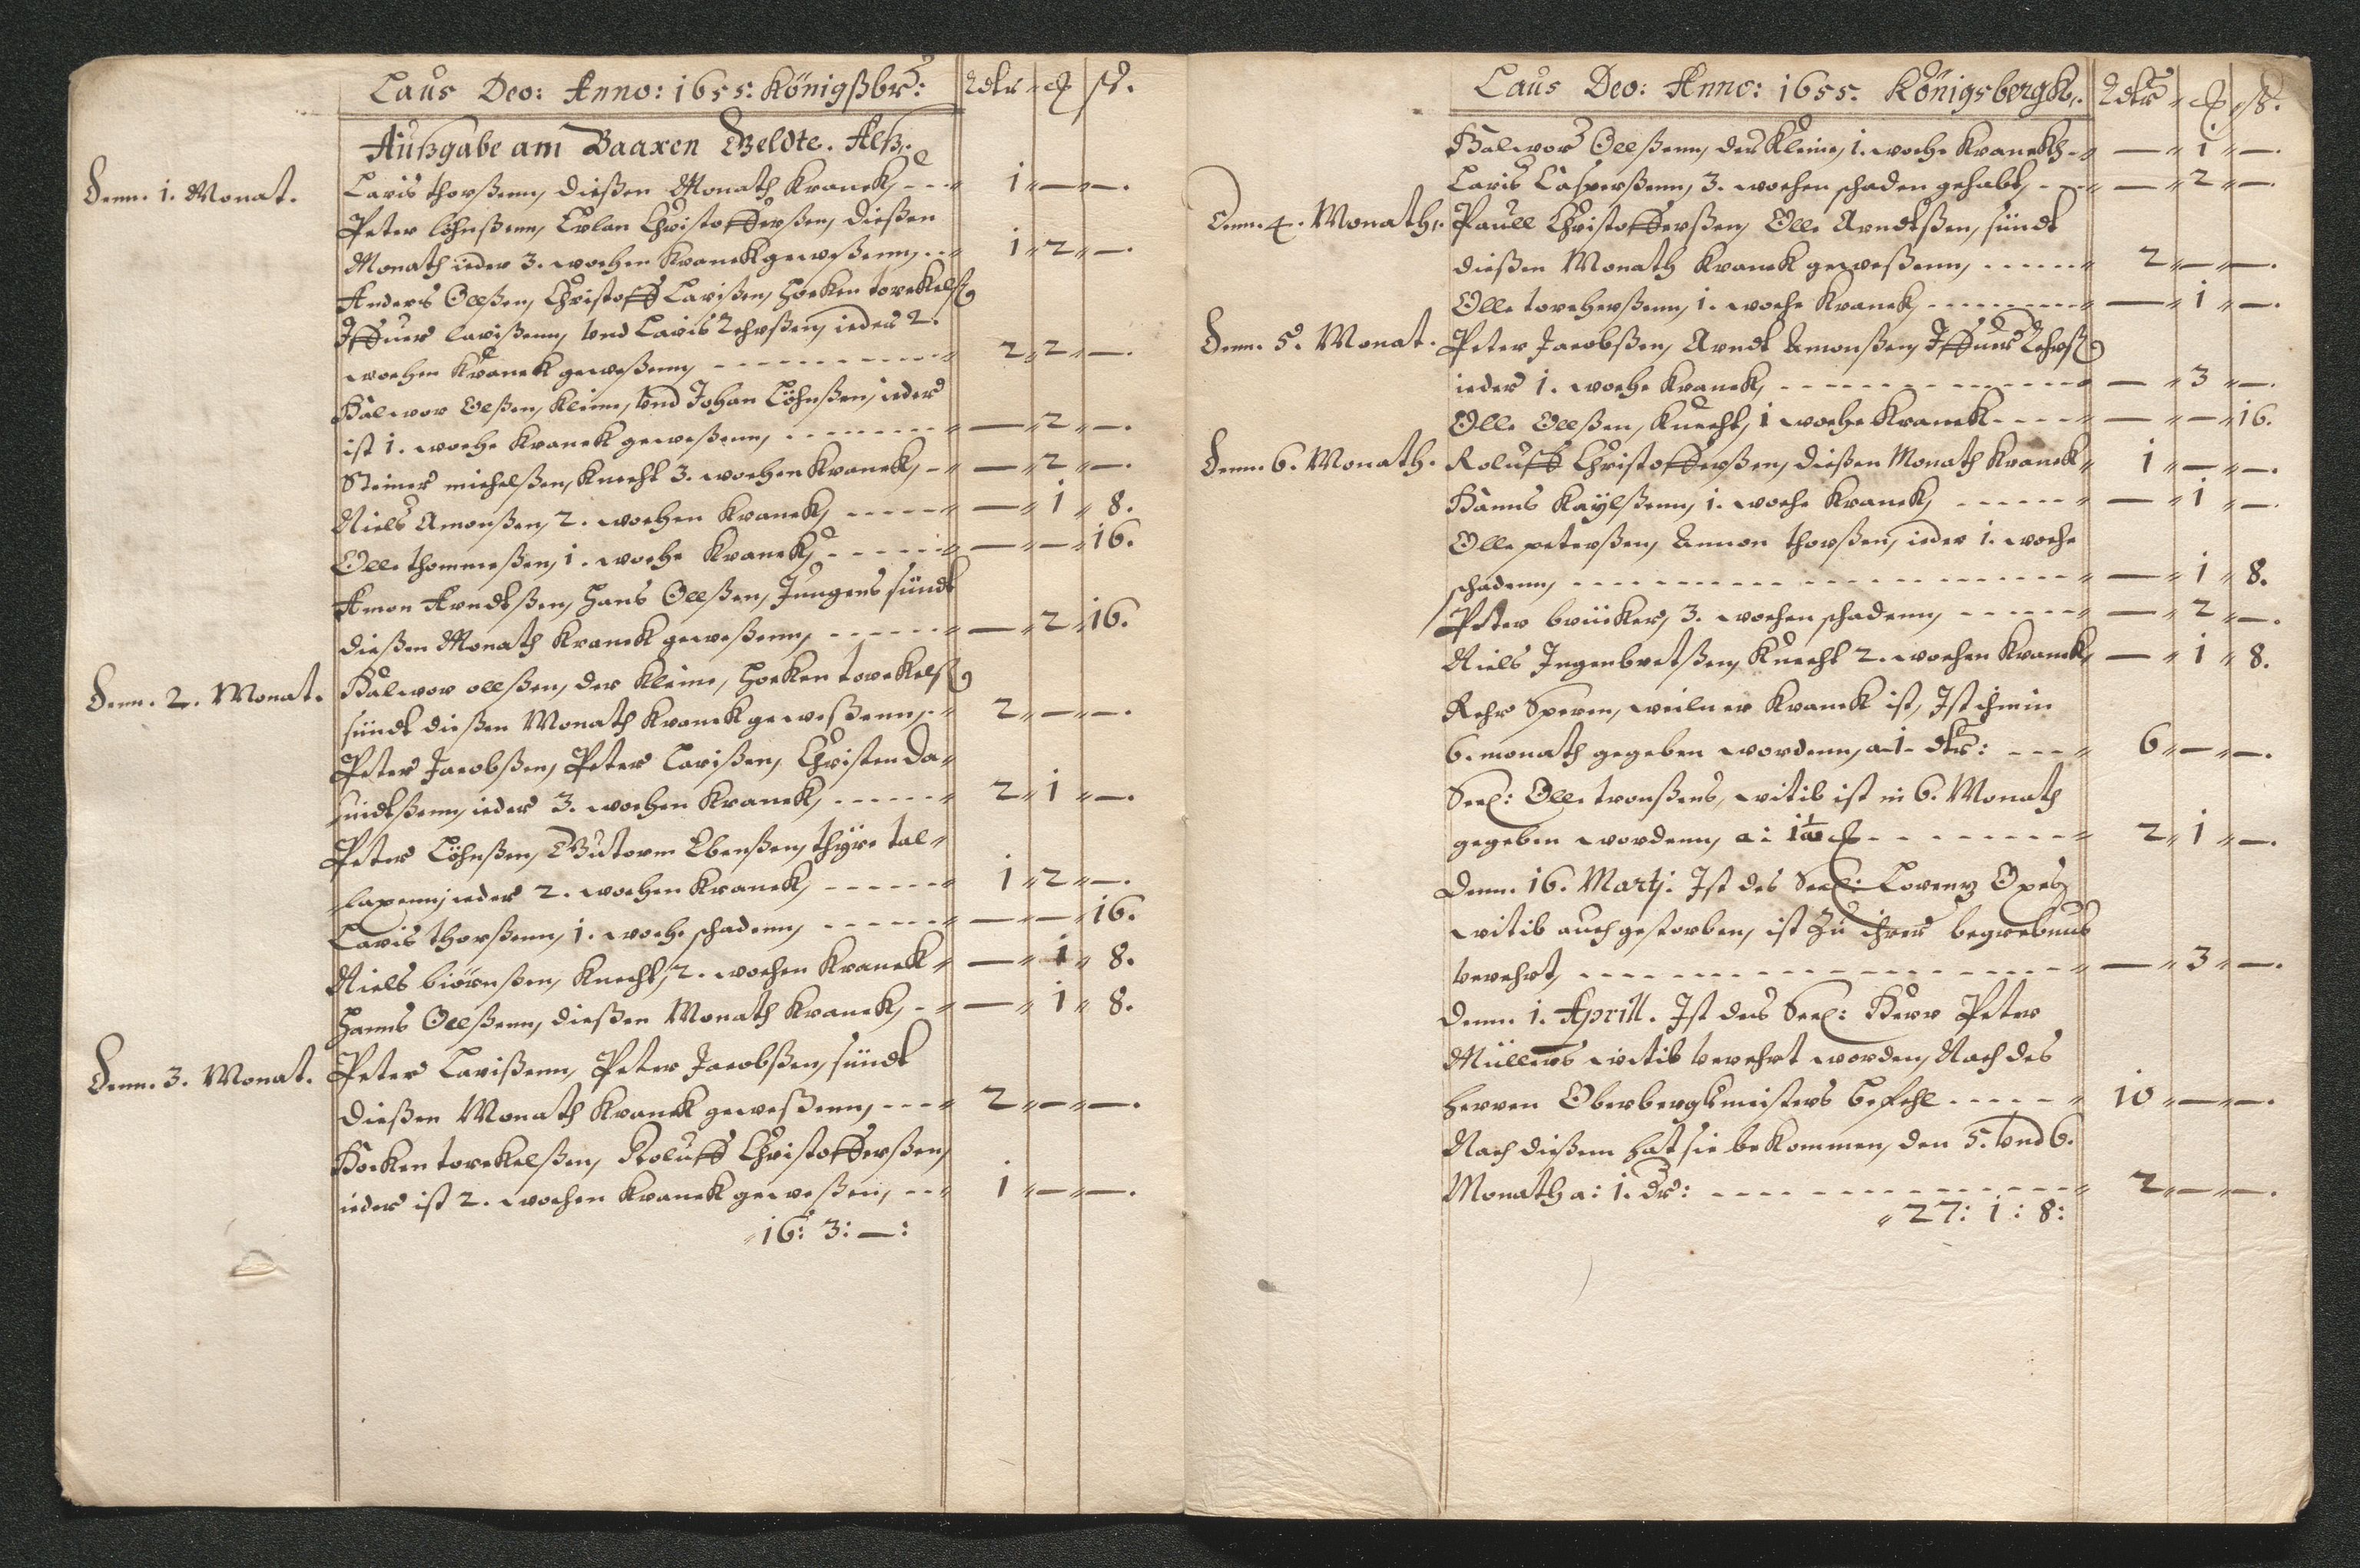 Laus Deo: Anno: 1655: Königßbr: Rdtr ort ß.
Außgabe am Baaren Geldte. Alß,
Denn. 1. Monat. Laris thorßenn, dießen Monath Kranck, --- 1 — —.
Peter löhnßenn, Erlan Christofferßen, dießen
Monath ieder 3. wochen Kranck geweßenn, .. 1 2 —.
Anders Ollßen, Christoff Larißen, Hocken torckelß
Iffuer larißenn, vnd Laris Rehrßen, ieder 2.
wochen Kranck geweßenn, ---------- 2 2 —.
Halwor Olßen, Kleine, vnd Johan Löhnßen, ieder
ist 1. woche Kranck geweßenn, -------- — 2 —.
Steiner michelßen, Knecht 3. wochen Kranck, - — 2 —.
Niels Amonßen, 2. wochen Kranck, ----- — 1 8.
Olle thommeßen, 1. woche Kranck, ------ — — 16.
Amon Arndtßen, Hans Ollßen, Jungens sündt
dießen Monath Kranck geweßenn, ------ — 2 16.
Denn. 2. Monat. Halwor ollßen, der Kleine, Hocken torckelß
sündt dießen Monath Kranck geweßenn, - 2 — —.
Peter Jacobßen, Peter Larißen, Christen Da-
uidtßenn, ieder 3. wochen Kranck, ------ 2 1 —.
Peter Löhnßen, Gutorm Ebenßen, thyre tal-
laxenn, ieder 2. wochen Kranck, ------ 1 2 —.
Laris thorßenn, 1. woche schadenn, ------ — — 16.
Niels biörnßen, Knecht, 2. wochen Kranck — 1 8.
Hanns Ollßenn, dießen Monath Kranck, - — 1 8.
Denn. 3. Monat. Peter Larißenn, Peter Jacobßen, sündt
dießen Monath Kranck geweßenn, --- 2 — —.
Hocken torckelßen, Roluff Christofferßen,
ieder ist 2. wochen Kranck geweßen, -- 1 — —.
16: 3: —:
Laus Deo: Anno: 1655. Königsbergk. Rdtr ort ß.
Halwor Ollßenn, der Kleine, 1. woche Kranckh - — 1 —.
Laris Casperßenn, 3. wochen schaden gehabt, --- — 2 —.
Denn. 4. Monath. Paull Christofferßen, Olle Arndtßen, sündt
dießen Monath Kranck geweßenn, ------ 2 — —.
Olle torcherßenn, 1. woche Kranck, -------- — 1 —.
Denn. 5. Monat. Peter Jacobßen, Arndt Amonßen, Iffuer Lehrß
ieder 1. woche Kranck, -------------- — 3 —.
Olle Ollßen, Knecht, 1 woche Kranck ---- — — 16.
Denn. 6. Monath. Roluff Christofferßen, dießen Monath Kranck 1 — —.
Hanns Kaylßenn, 1. woche Kranck, ------ — 1 —.
Olle peterßen, Amon thorßen, ieder 1. woche
schadenn, ---------------------- — 1 8.
Peter brücker, 3. wochen schadenn, ------ — 2 —.
Niels Ingenbretßen, Knecht 2. wochen Kranck, — 1 8.
Rehr Speren, weiln er Kranck ist, Ist ihm in
6. monath gegeben wordenn, a 1. dtr: --- 6 — —.
Seel: Olle tronßens, witib ist in 6. Monath
gegeben wordenn, a: 1½ ort -------- 2 1 —.
Denn. 16. Martj. Ist des Seel: Lorentz Opels
witib auch gestorben, ist Zu ihrer begrebnus
verehrt, ---------------------- — 3 —.
Denn. 1. Aprill. Ist des Seel: Herr Peter
Müllers witib verehrt worden, Nach des
Herren Oberbergkmeisters befehl ----- 10 — —.
Nach dießem hat sie bekommen, den 5. vnd 6.
Monath a: 1. dr: ----------------- 2 — —.
27: 1: 8: